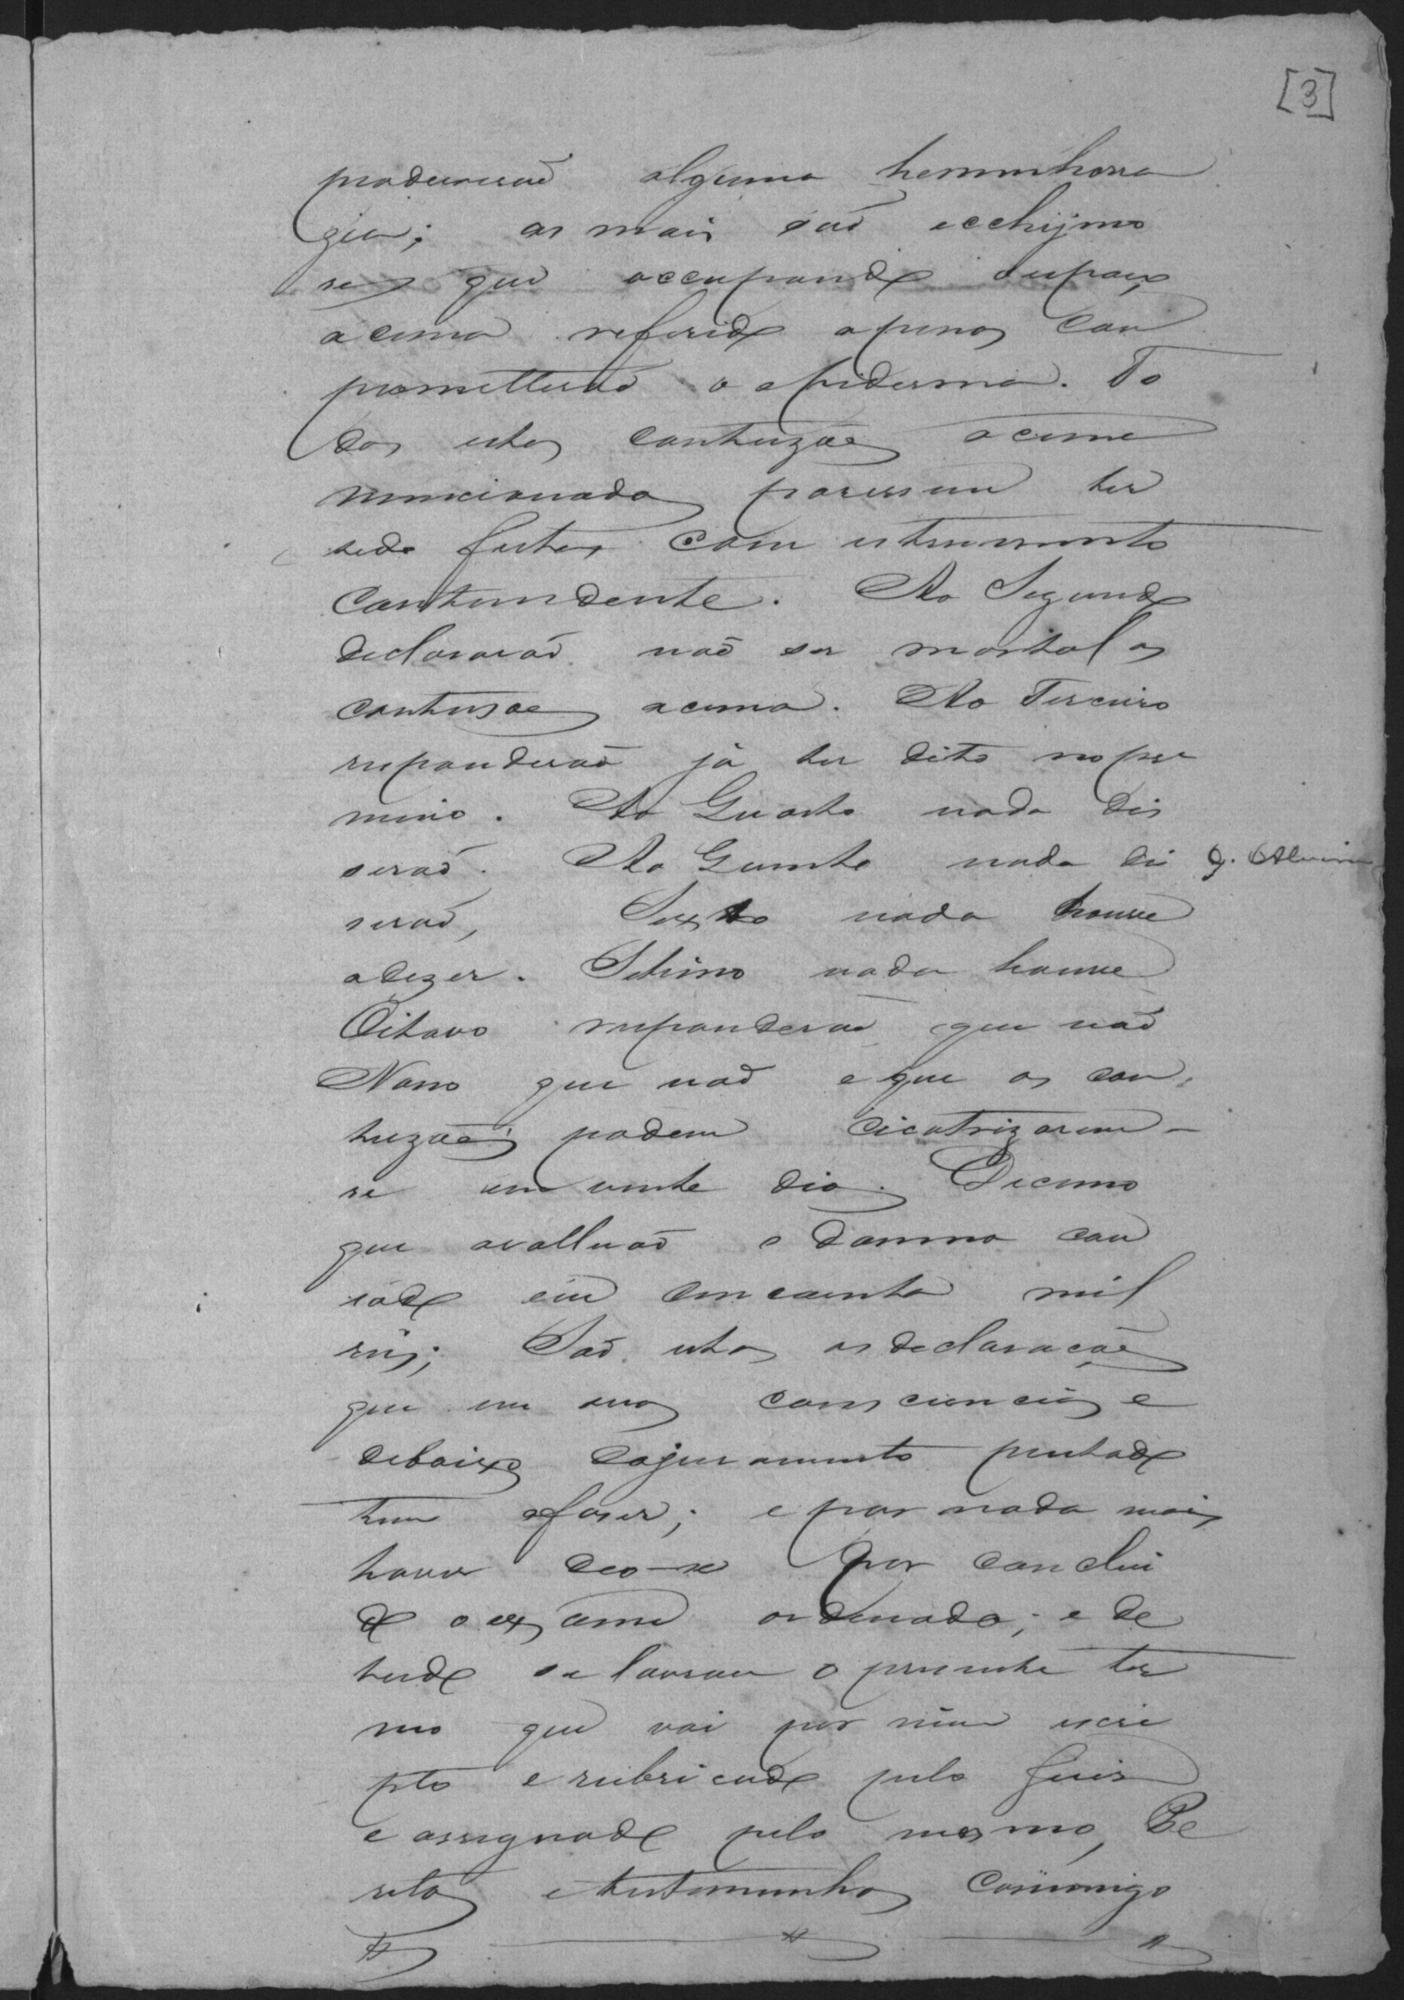 [3]
produserão alguma hemmhorra
gia; as mais são ecchymo
ses que occupando espaço
acima referido apenas com
prometterão a epiderma. To
das estas contuzões acima
mencionadas paressem ter
sido feitas com estrumento
contundente. Ao Segundo
declararão não ser mortal as
contusões acima. Ao Terceiro
responderão já ter dito no pri
meiro. Ao Quarto nada dis
serão. Ao Quinto nada di
serão, Sexto nada houve
a dizer. Setimo nada houve
Oitavo responderão que não
Nono que não e que as con,
tuzões podem cicatrizarem-
se em vinte dias. Decimo
que avalluão o damno cau
sado em cincoenta mil
reis; São estas as declarações
que em suas consciencias e
debaixo do juramento prestado
tem a faser; e por nada mais
haver deo-se por conclui
do o exame ordenado; e de
tudo se lavrou o presente ter
mo que vai por mim escri
pto e rubricado pelo Juis
e assignado pelo mesmo, Pe
ritos e testemunhas commigo